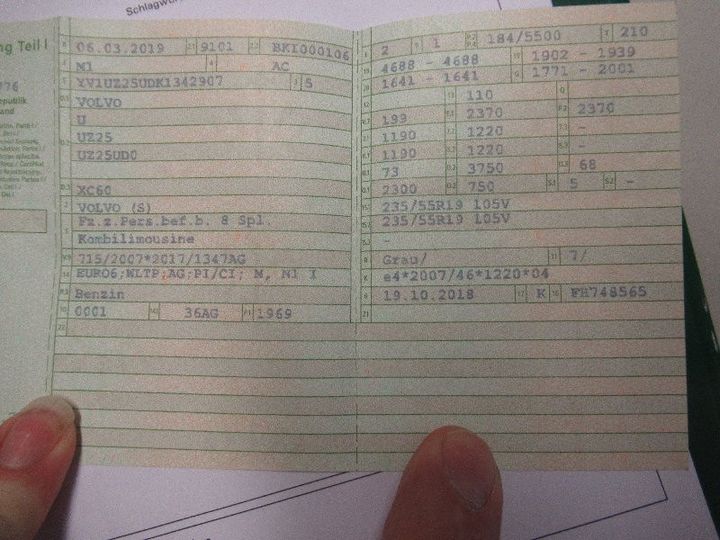 Schlagwor
ng Teil I
776
epublik
and
06.03.2019 9101 BKI000106
M1 AC
YV1UZ25UDK1342907 5
VOLVO
U
UZ25
UZ25UD0
XC60
VOLVO (S)
Fz.z.Pers.bef.b. 8 Spl.
Kombilimousine
715/2007*2017/1347AG
EURO6;WLTP;AG;PI/CI; M, N1 I
Benzin
0001 36AG 1969
2 1 184/5500 210
4688 - 4688 1902 - 1939
1641 - 1641 1771 - 2001
110
199 2370 2370
1190 1220 -
1190 1220 -
73 3750 68
2300 750 5 -
235/55R19 105V
235/55R19 105V
-
Grau/ 7/
e4*2007/46*1220*04
19.10.2018 K FH748565